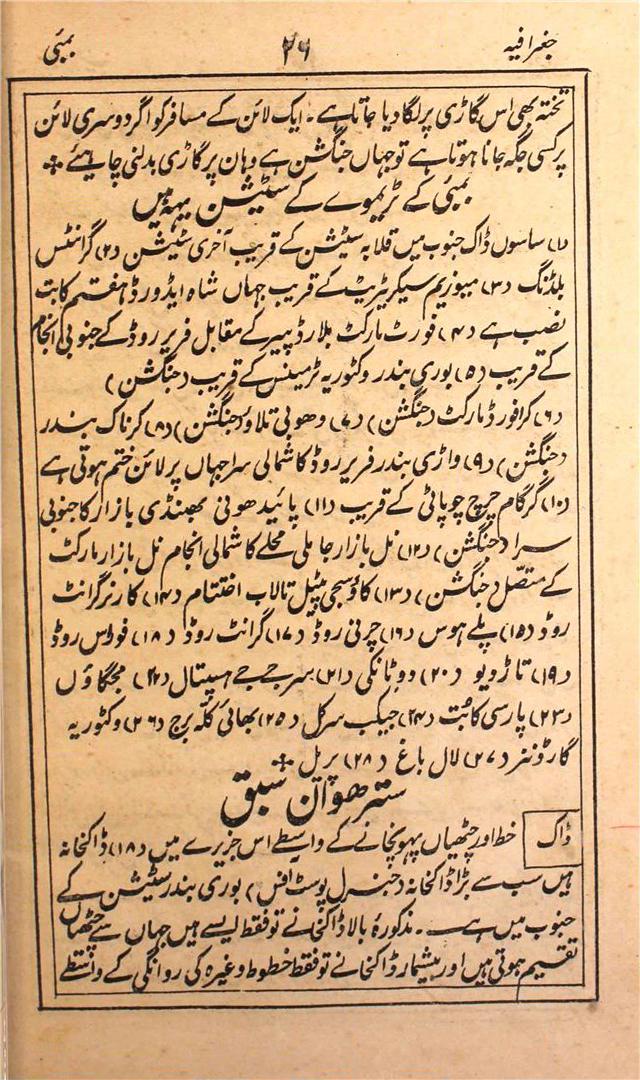 جغرافیہ ۲۶ بمبئی
تختہ بھی اس گاڑی پر لگا دیا جاتا ہے ۔ ایک لائن کے مسافر کو اگر دوسری لائن
پر کسی جگہ جانا ہوتا ہے تو جہاں جنگشن ہے وہان پر گاڑی بدلنی چاہیئے
بمبئی کے ٹریموے کے سٹیشن یہہ ہیں
(۱) ساسوں ڈاک جنوب میں قلابہ سٹیشن کے قریب آخری سٹیشن (۲) گرانٹس
بلڈنگ (۳) میوزیم سیکریٹریٹ کے قریب جہاں شاہ ایڈورڈ ہفتم کا بت
نصب ہے (۴) فورٹ مارکٹ بلارڈ پیر کے مقابل فریر روڈ کے جنوبی انجام
کے قریب (۵) بوری بندر وکٹوریہ ٹرمینس کے قریب (جنگشن)
(۶) کرافورڈ مارکٹ (جنگشن) (۷) دھوبی تلاؤ (جنگشن) (۸) کرناک بندر
(جنگشن) (۹) واڑی بندر فریر روڈ کا شمالی سرا جہاں پر لائن ختم ہوتی ہے
(۱۰) گرگام چرچ چوپاٹی کے قریب (۱۱) پائیدھونی بھنڈی بازار کا جنوبی
سرا (جنگشن) (۱۲) نل بازار جاملی محلے کا شمالی انجام نل بازار مارکٹ
کے متصل (جنگشن) (۱۳) کاؤسجی پٹیل تالاب اختتام (۱۴) کارنر گرانٹ
روڈ (۱۵) پلے ہوس (۱۶) چرنی روڈ (۱۷) گرانٹ روڈ (۱۸) فوراس روڈ
(۱۹) تاڑدیو (۲۰) دو ٹانکی (۲۱) سر جے جے ہسپتال (۲۲) مجگاؤں
(۲۳) پارسی کا بت (۲۴) جیکب سرکل (۲۵) بھائی کلّہ برج (۲۶) وکٹوریہ
گارڈنز (۲۷) لال باغ (۲۸) پریل
سترھوان سبق
ڈاک خط اور چٹھیاں پہونچانے کے واسطے اس جزیرے میں (۱۸) ڈاکخانہ
ہیں سب سے بڑا ڈاکخانہ (جنرل پوسٹ افس) بوری بندر سٹیشن کے
جنوب میں ہے ۔ مذکورۂ بالا ڈاکخانے تو فقط ایسے ہیں جہاں سے چٹھیاں
تقسیم ہوتی ہیں اور بیشمار ڈاکخانے تو فقط خطوط وغیرہ کی روانگی کے واسطے